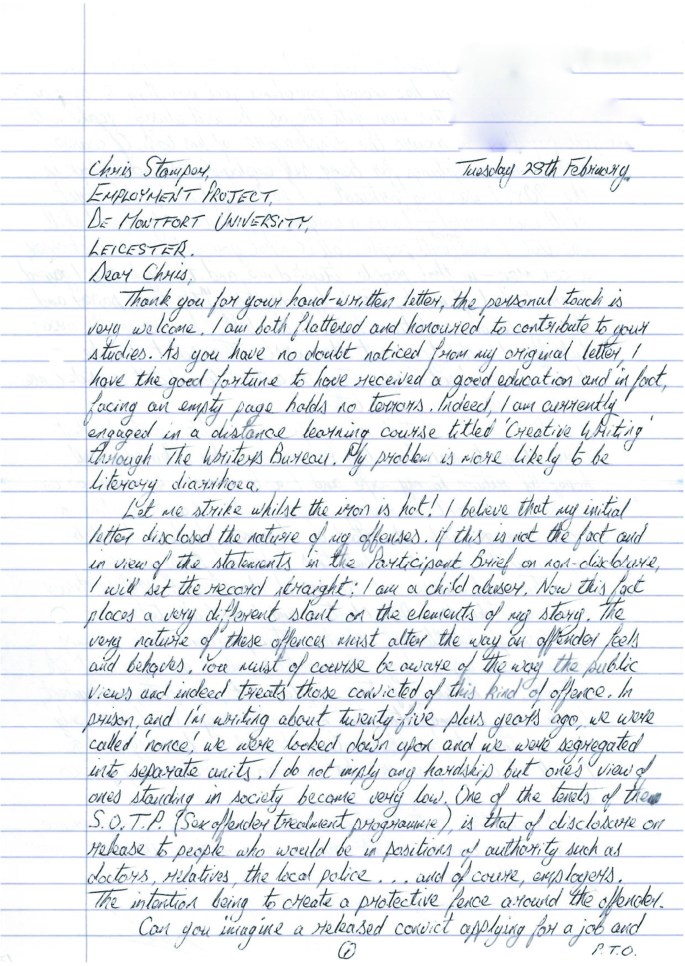 Tuesday 28th February
Chris Stamper,
EMPLOYMENT PROJECT,
DE MONTFORT UNIVERSITY,
LEICESTER.
Dear Chris,
Thank you for your hand-written letter, the personal touch is
very welcome. I am both flattered and honoured to contribute to your
studies. As you have no doubt noticed from my original letter, I
have the good fortune to have received a good education and in fact,
facing an empty page holds no terrors. Indeed, I am currently
engaged in a distance learning course titled 'Creative Writing'
through The Writers Bureau. My problem is more likely to be
literary diarrhoea.
Let me strike whilst the iron is hot! I believe that my initial
letter disclosed the nature of my offenses. if this is not the fact and
in view of the statements in the Participant Brief on non-disclosure,
I will set the record straight; I am a child abuser. Now this fact
places a very different slant on the elements of my story. The
very nature of these offences must alter the way an offender feels
and behaves. You must of course be aware of the way the public
views and indeed treats those convicted of this kind of offence. In
prison, and I'm writing about twenty-five plus years ago, we were
called 'nonce', we were looked down upon and we were segregated
into separate units. I do not imply any hardship but one's view of
ones standing in society became very low. One of the tenets of the
S.O.T.P. (Sex offender treatment programme), is that of disclosure on
release to people who would be in positions of authority such as
doctors, relatives, the local police ... and of course, employers.
The intention being to create a protective fence around the offender.
Can you imagine a released convict applying for a job and
1
P.T.O.